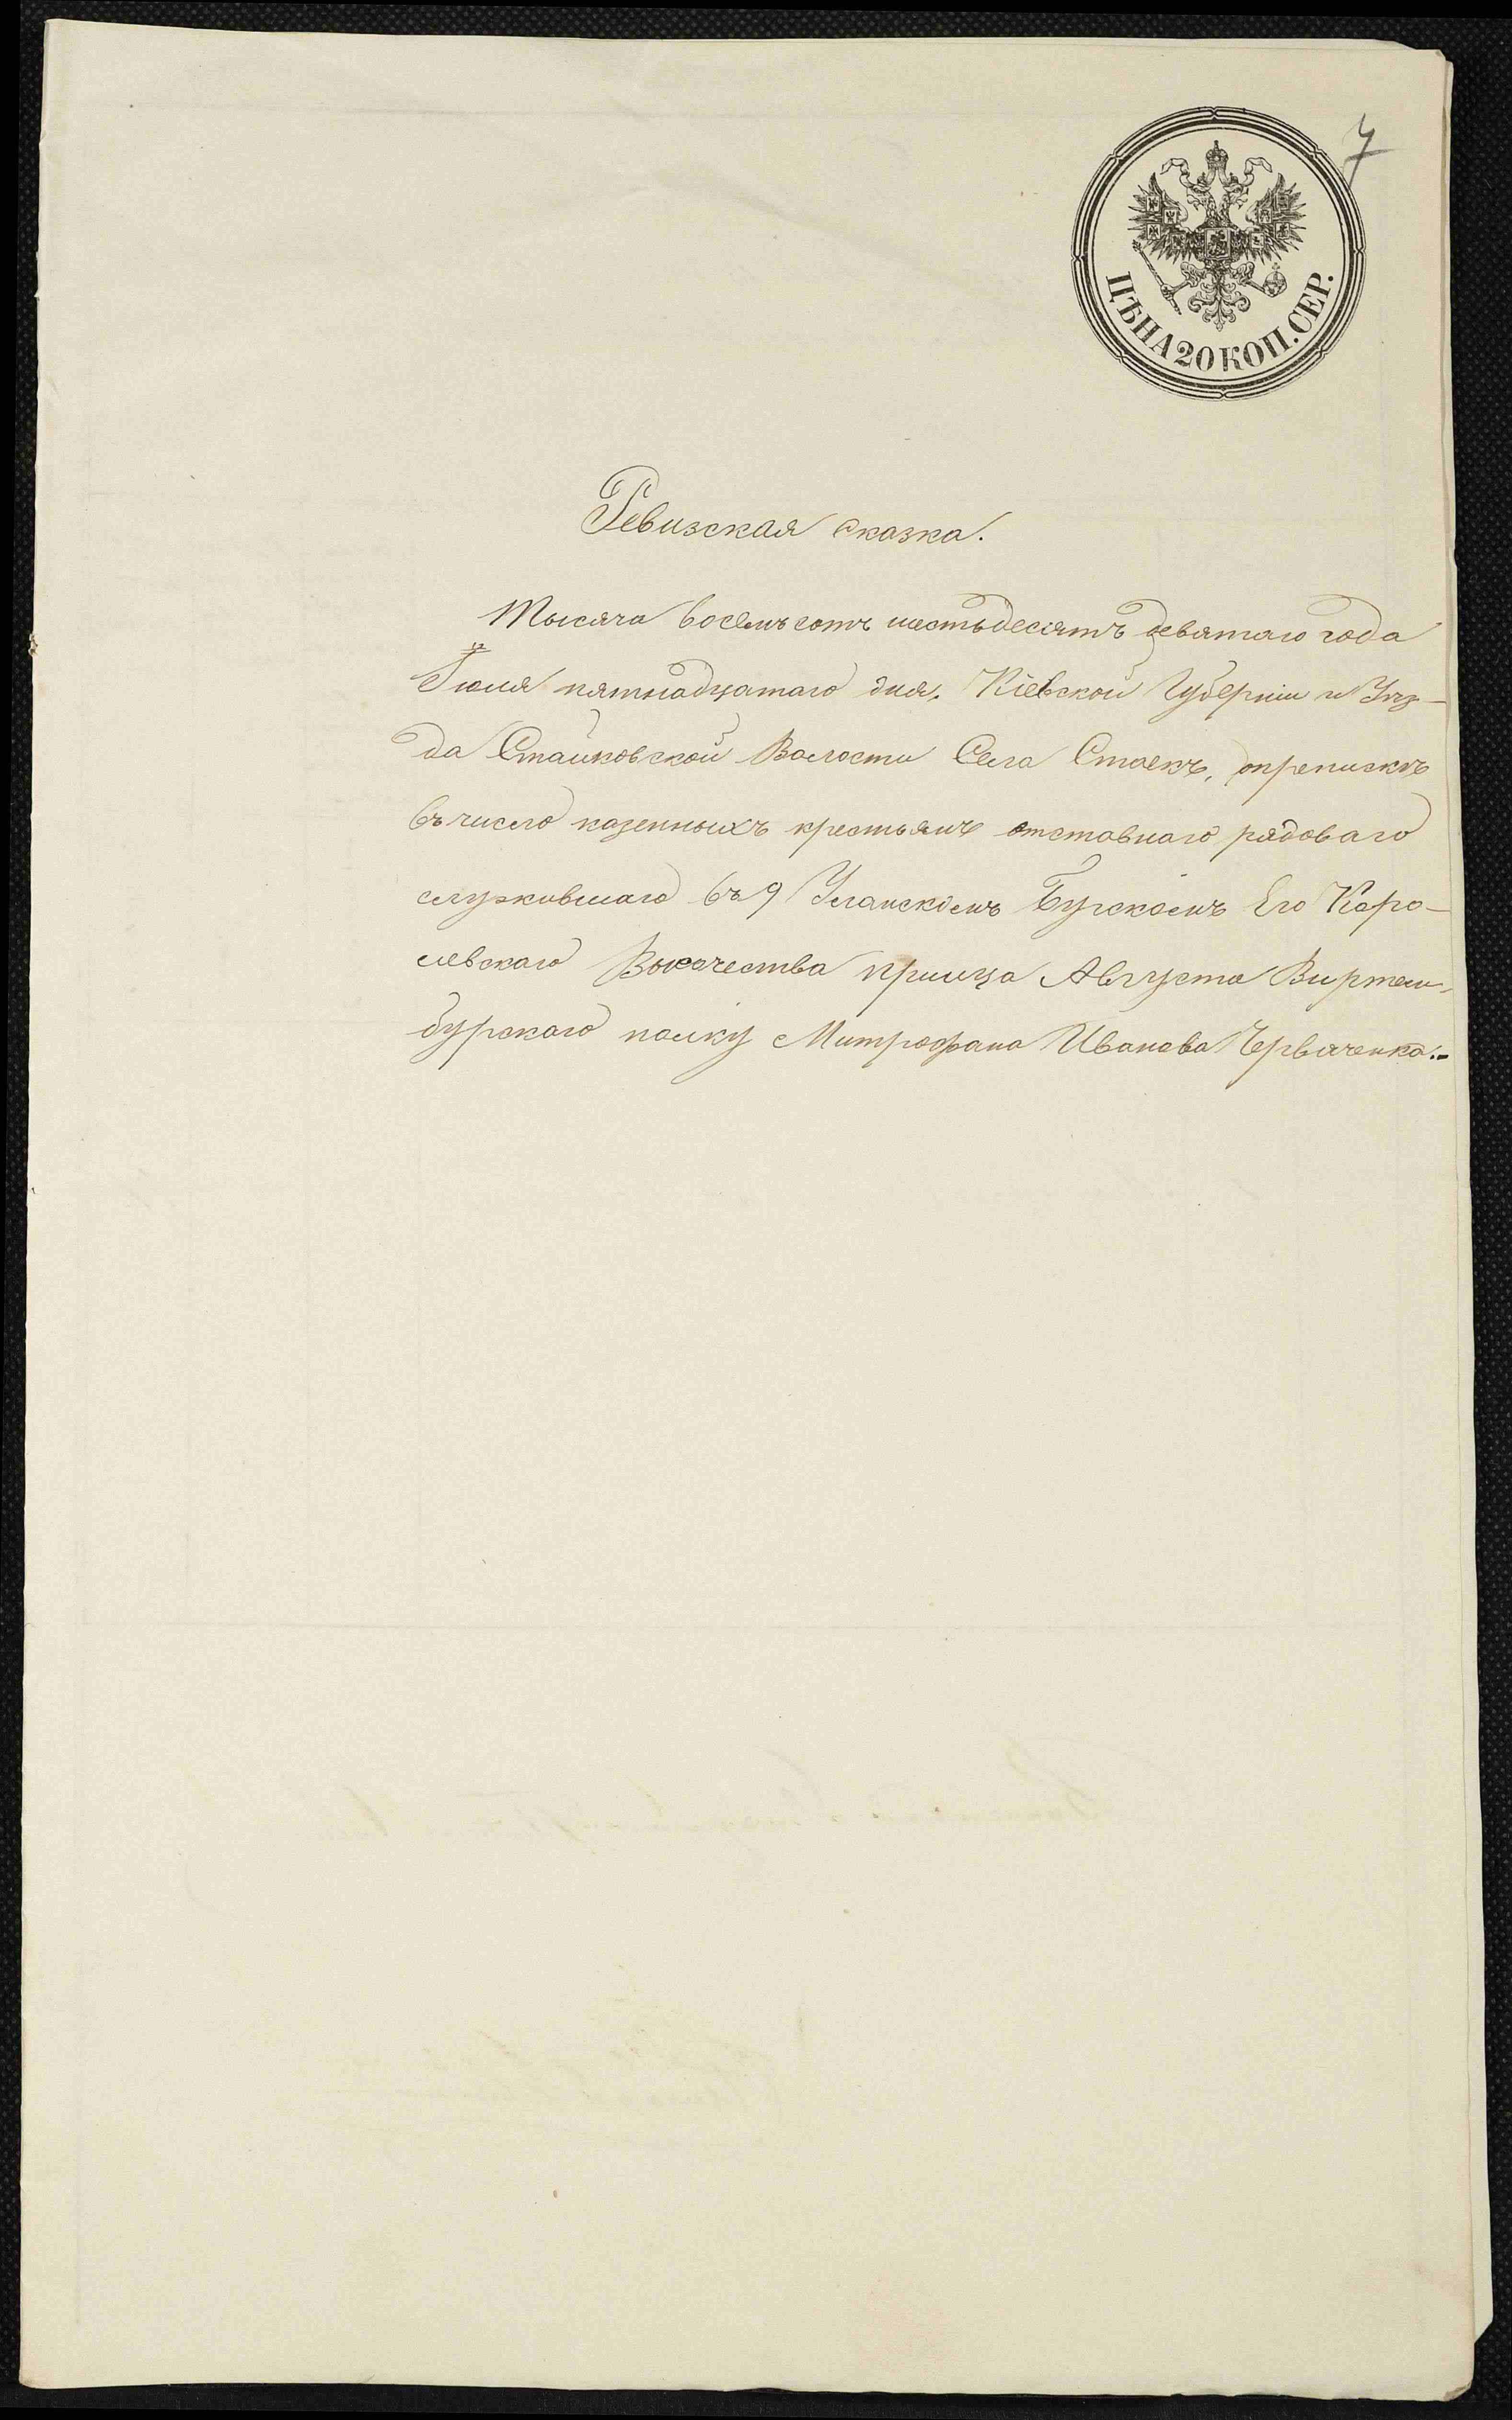 7
ЦѢНА 20 КОП. СЕР.
Ревизская сказка.
Тысяча восемьсотъ шестьдесятъ девятаго года
Іюля пятнадцатаго дня, Кіевской Губерніи и Уѣз-
да Стайковской Волости Села Стаекъ, о припискѣ
въ число казенныхъ крестьянъ отставнаго рядоваго
служившаго въ 9 Уланскомъ Бугскомъ Его Коро-
левскаго Высочества принца Августа Виртем-
бургскаго полку Митрофана Иванова Червяченка.